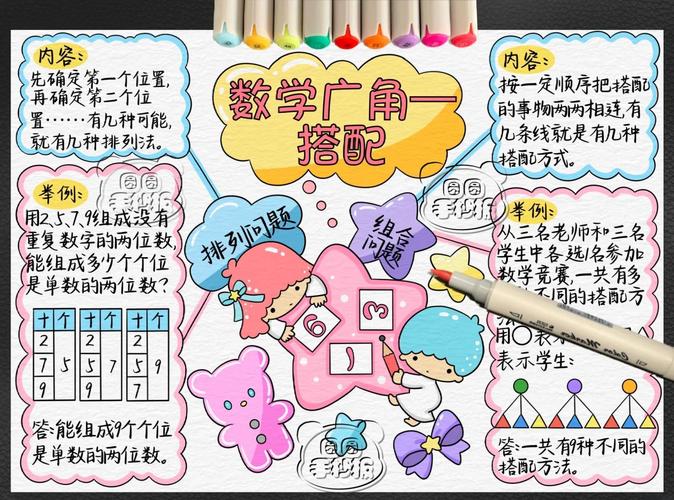 数学广角—
搭配
内容:
先确定第一个位置,
再确定第二个位
置……有几种可能,
就有几种排列法。
内容:
按一定顺序把搭配
的事物两两相连,有
几条线就是有几种
搭配方式。
排列问题
组合
问题
举例:
用2、5、7、9组成没有
重复数字的两位数,
能组成多少个个位
是单数的两位数?
十 个 十 个 十 个
2 2 2
7 5 5 7 5 9
9 9 7
答:能组成9个个位
是单数的两位数。
举例:
从三名老师和三名
学生中各选1名参加
数学竞赛,一共有多
不同的搭配方
用○表示
表示学生:
答:一共有9种不同的
搭配方法。
6 3 1
圆圆
手抄报
圆圆
手抄报
圆圆
手抄报